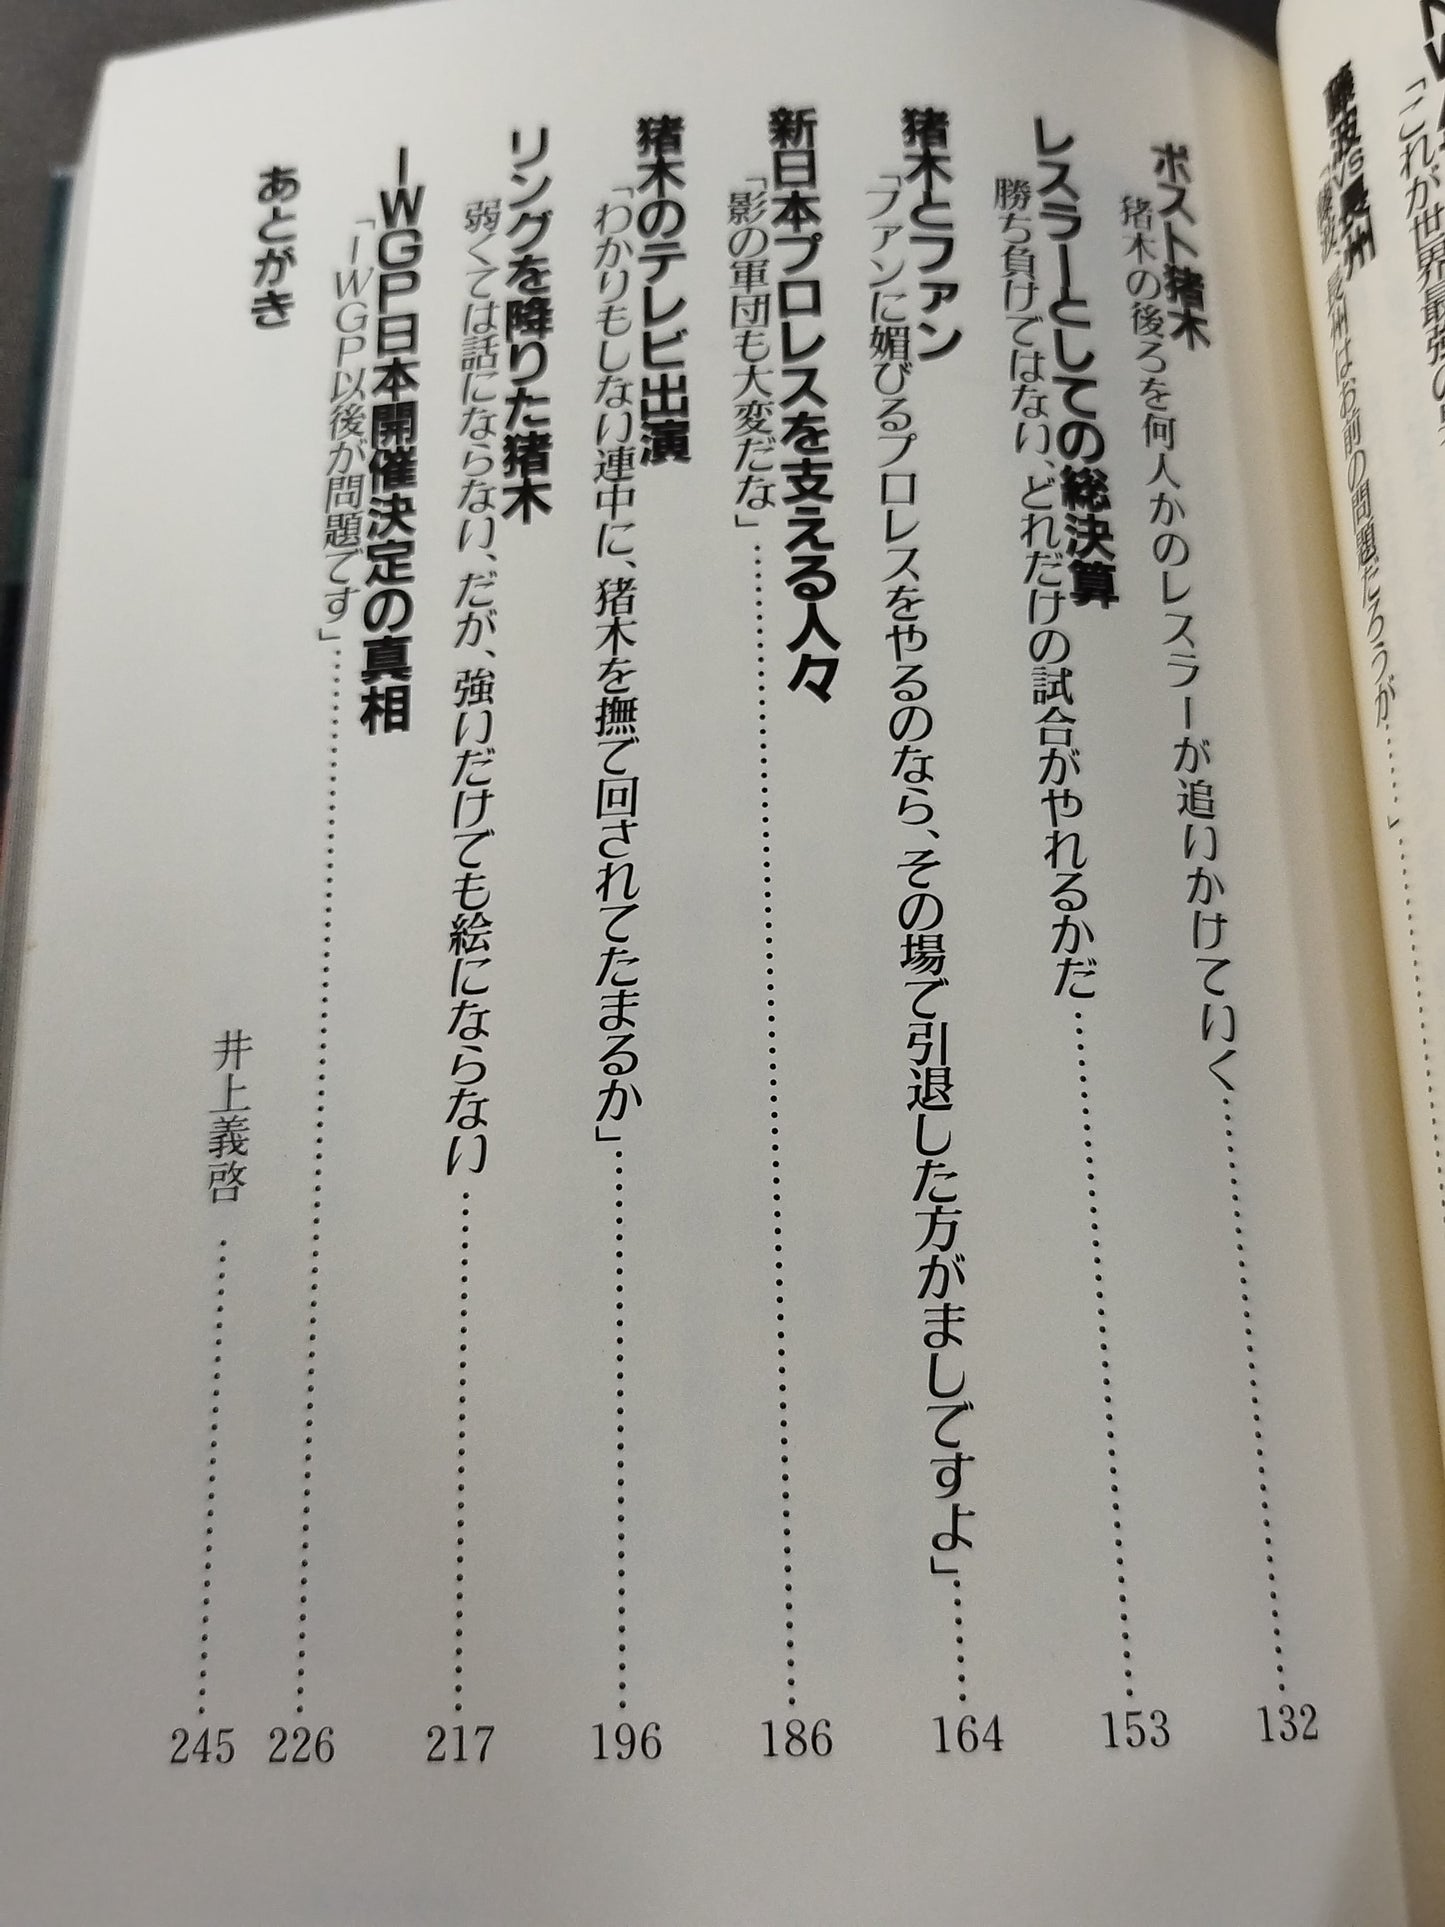 「これが世界最強の
藤波VS長州
「藤波、長州はお前の問題だろうが……」
ポスト猪木
猪木の後ろを何人かのレスラーが追いかけていく……132
レスラーとしての総決算
勝ち負けではない、どれだけの試合がやれるかだ……153
猪木とファン
「ファンに媚びるプロレスをやるのなら、その場で引退した方がましですよ」……164
新日本プロレスを支える人々
「影の軍団も大変だな」……186
猪木のテレビ出演
「わかりもしない連中に、猪木を撫で回されてたまるか」……196
リングを降りた猪木
弱くては話にならない、だが、強いだけでも絵にならない……217
IWGP日本開催決定の真相
「IWGP以後が問題です」……226
あとがき
井上義啓……245